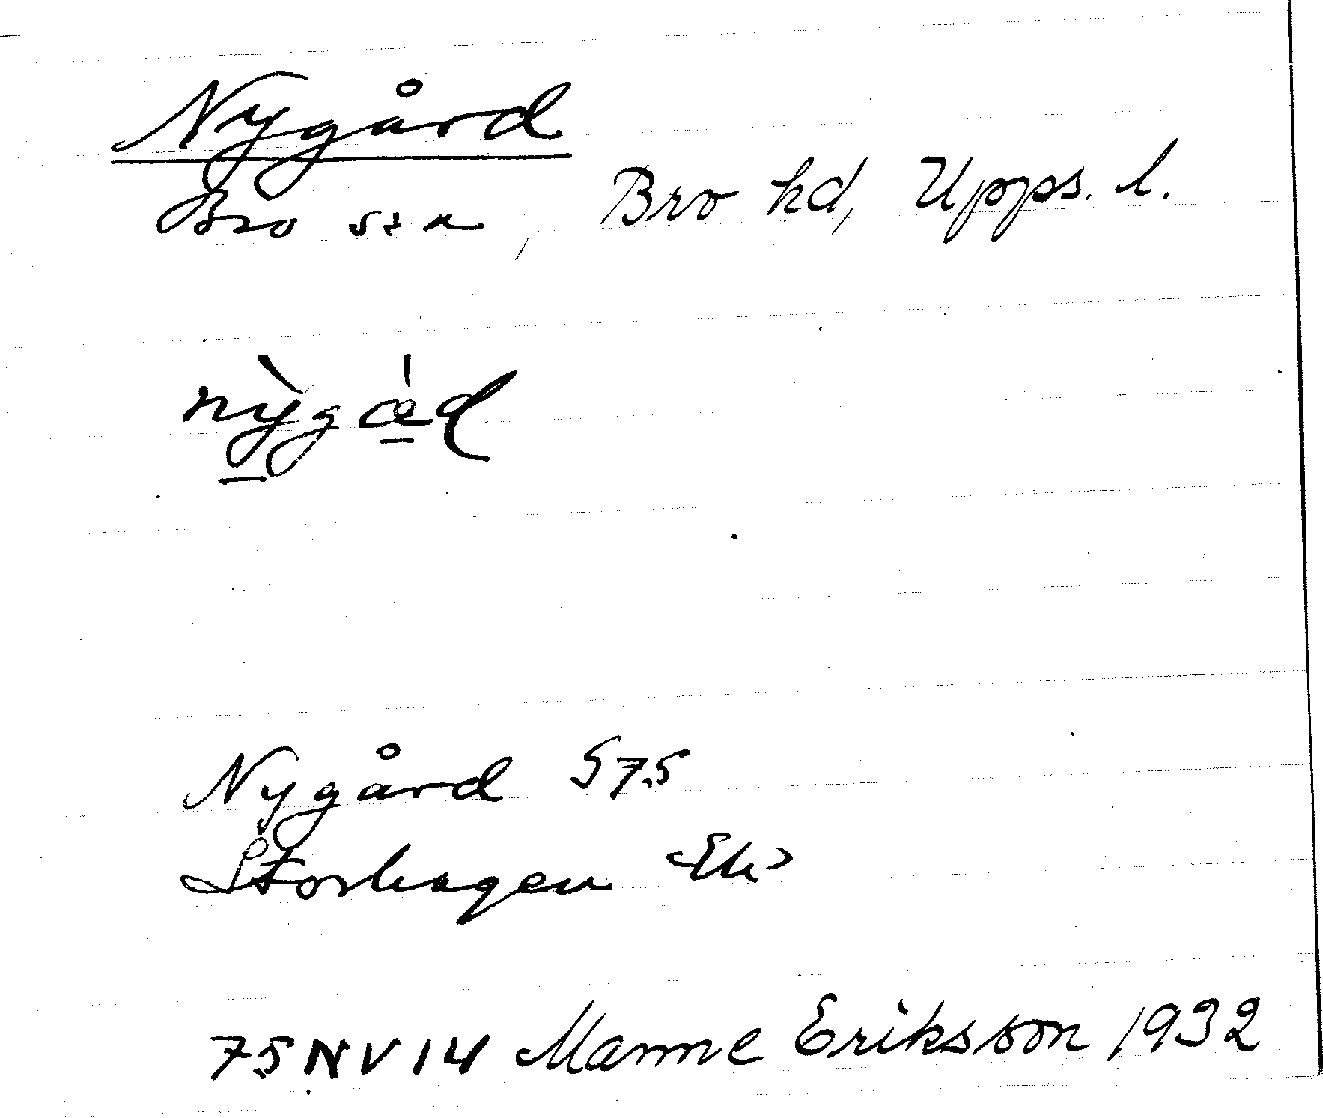 Nygård
Bro sn, Bro hd, Upps. l.
nỳgæ̀d
Nygård S 75
Storhagen Ek
75 NV 14 Manne Eriksson 1932